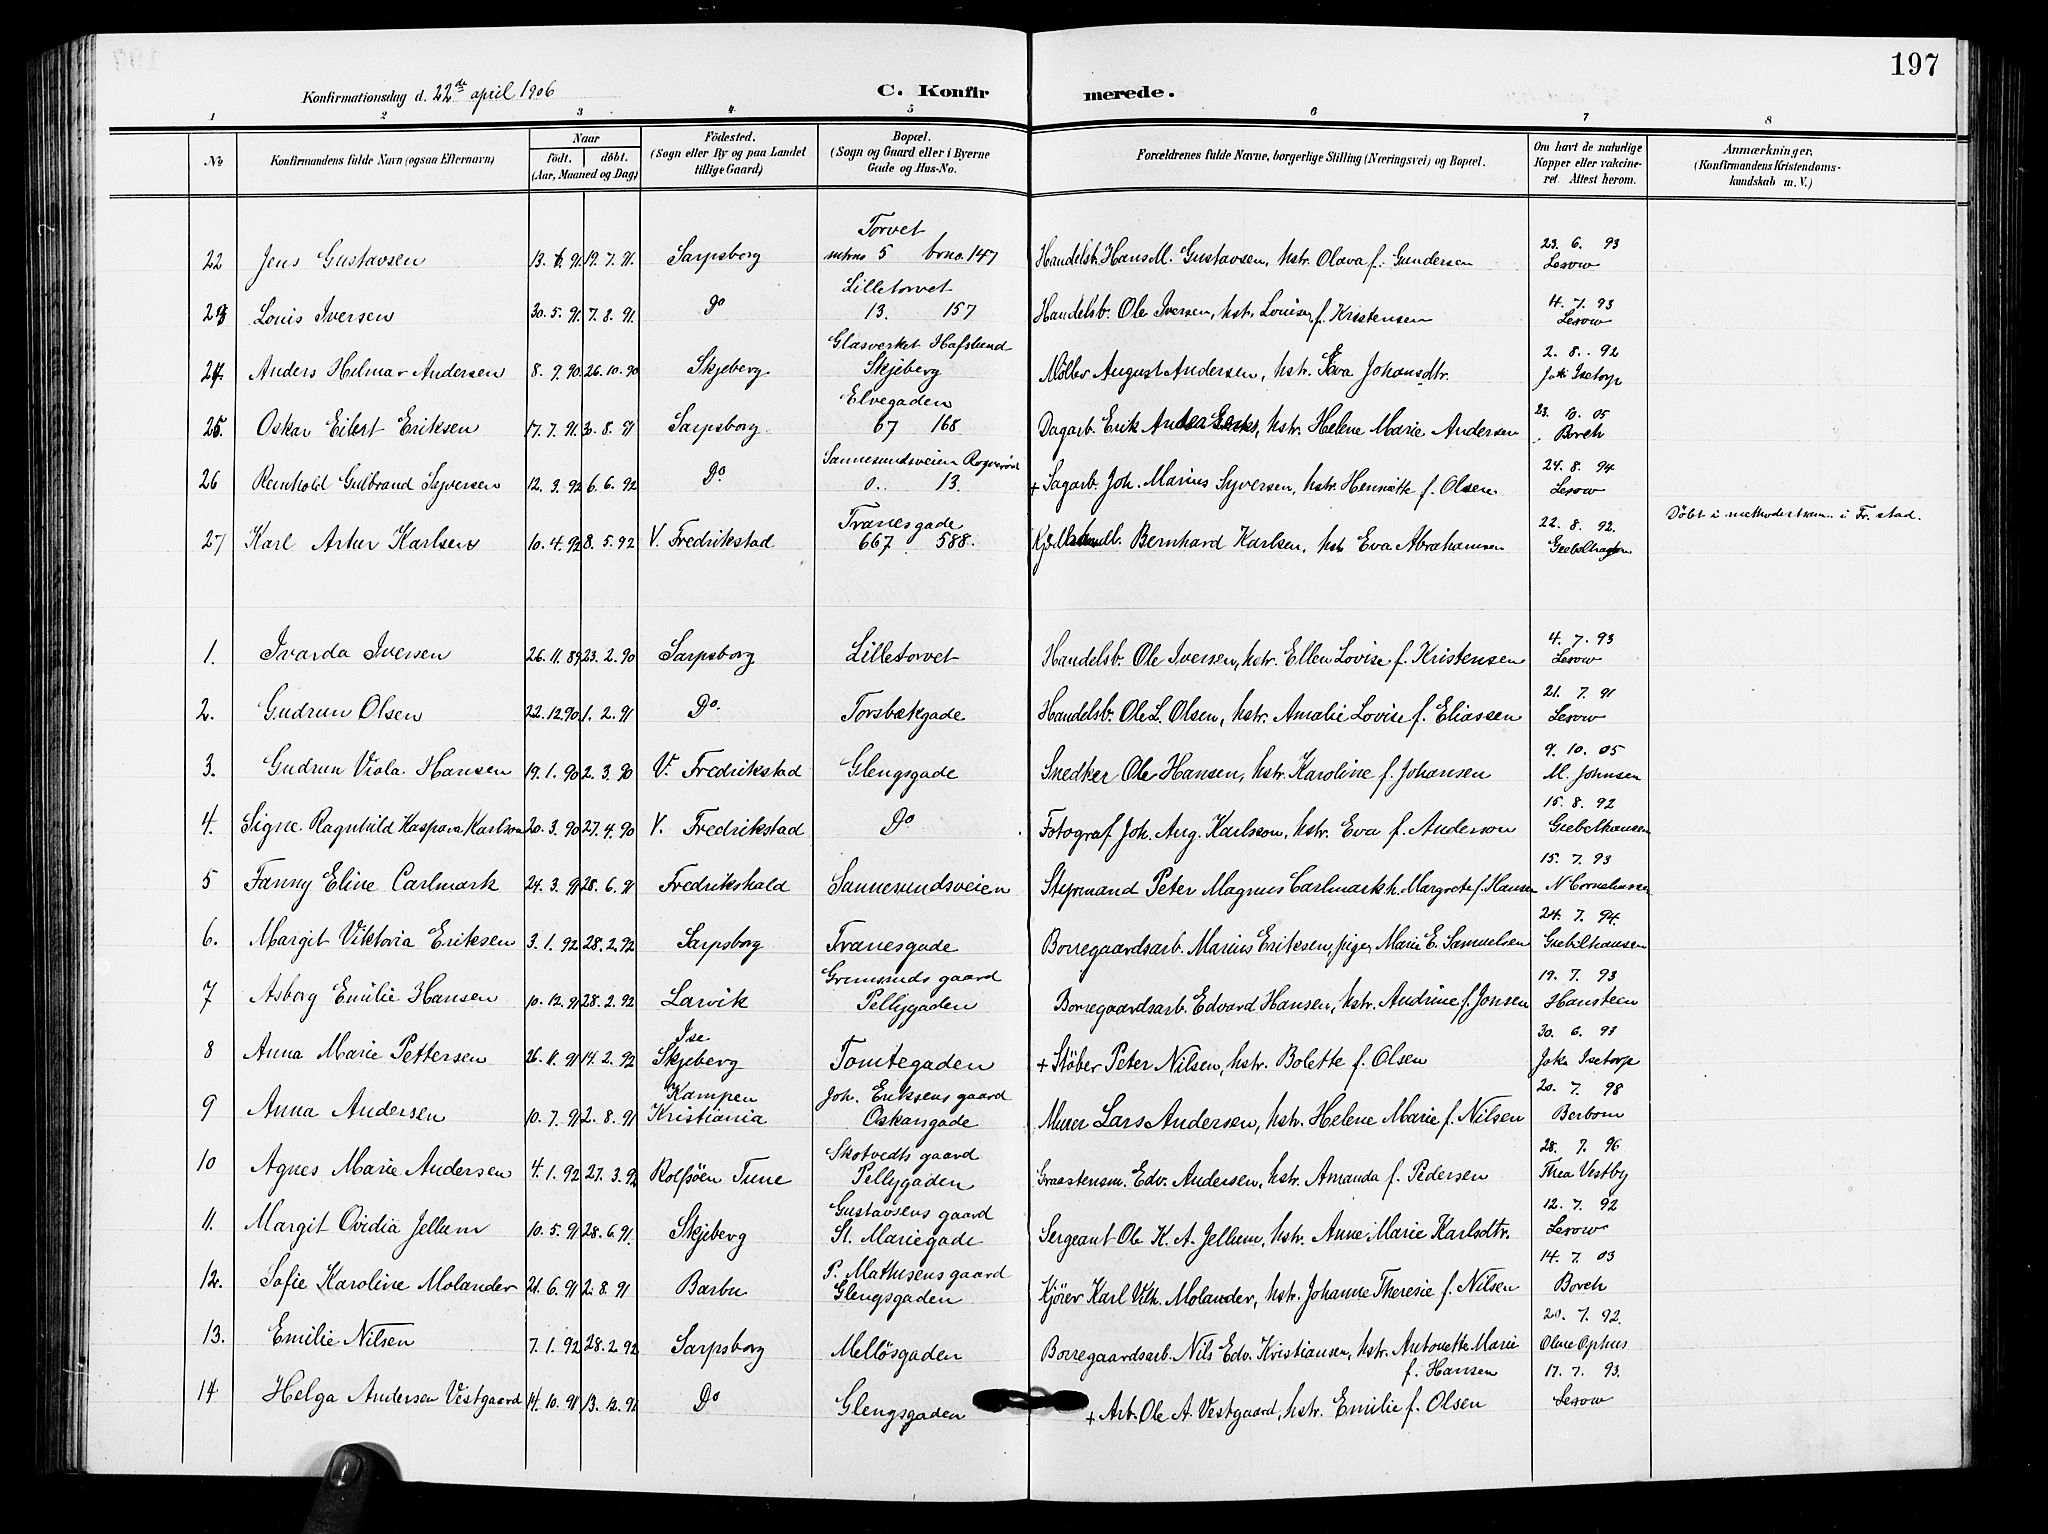 197
Konfirmationsdag d. 22de april 1906 C. Konfir merede.
1 2 3 4 5 6 7 8
No Konfirmandens fulde Navn (ogsaa Efternavn) Naar født. døbt. (Aar, Maaned og Dag) Fødested. (Sogn eller By og paa Landet tillige Gaard) Bopæl. (Sogn og Gaard eller i Byerne Gade og Hus-No. Forældrenes fulde Navne, borgerlige Stilling (Næringsvei) og Bopæl. Om havt de naturlige Kopper eller vakcineret. Attest herom. Anmærkninger, (Konfirmandens Kristendomskundskab m. V.)
Torvet 23. 6. 93
22 Jens Gustavsen 13. 6. 91 19. 7. 91. Sarpsborg mtrno 5 brno. 147 Handelsb. Hans M. Gustavsen, hstr. Olava f. Gundersen Lesow
Lilletorvet 4. 7. 93
23 Louis Iversen 30. 5. 91. 7. 8. 91. Do 13. 157 Handelsb. Ole Iversen, hstr. Louise f. Kristensen Lesow
Glasverket Hafslund 2. 8. 92
24. Anders Helmar Andersen 8. 9. 90 26. 10. 90 Skjeberg Skjeberg Møller August Andersen, hstr. Eva Johansdtr. Joh. Isetorp
Elvegaden 23. 10. 05
25. Oskar Eilert Eriksen 17. 7. 91. 30. 8. 91 Sarpsborg 67 168 Dagarb. Erik, hstr. Helene Marie Andersen Borch
Sannesundsveien 24. 8. 94
26 Reinhold Gulbrand Syversen 12. 3. 92 6. 6. 92 Do. 0. 13. + Sagarb. Joh. Marius Syversen, hstr. Henriette f. Olsen. Lesow
Tranesgade 22. 8. 92. Døbt i methodistkam. i Fr. stad.
27 Karl Artur Karlsen 10. 4. 92 8. 5. 92 V. Fredrikstad 667 588. Bernhard Karlsen, hstr Eva Abrahamsen Giebelhausen
4. 7. 93
1. Ivarda Iversen 26. 11. 89 23. 2. 90 Sarpsborg Lilletorvet Handelsb. Ole Iversen, hstr. Ellen Lovise f. Kristensen Lesow
21. 7. 91
2. Gudrun Olsen 22. 12. 90 1. 2. 91 Do. Torsbækgade Handelsb. Ole L. Olsen, hstr. Amalie Lovise f. Eliassen Lesow
9. 10. 05
3. Gudrun Viola Hansen 19. 1. 90 2. 3. 90 V. Fredrikstad Glengsgade Snedker Ole Hansen, hstr. Karoline f. Johansen M. Johnsen
15. 8. 92
4. Signe Ragnhild Kaspara Karlson 20. 3. 90 27. 4. 90 V. Fredrikstad Do Fotograf Joh. Aug. Karlsson, hstr. Eva f. Anderson Giebelhausen
15. 7. 93
5 Fanny Eline Carlmark 24. 3. 91 28. 6. 91 Fredrikshald Sannesundsveien Styrmand Peter Magnus Carlmark h. Margrete f. Hansen N Corneliussen
24. 7. 94.
6. Margit Viktoria Eriksen 3. 1. 92 28. 2. 92 Sarpsborg Tranesgade Borregaardsarb. Marius Eriksen, pige Marie E. Samuelsen Giebelhausen
Gremsrunds gaard 19. 7. 93
7 Asborg Emilie Hansen 10. 12. 91 28. 2. 92 Larvik Pellygaden Borregaardsarb. Edvard Hansen, hstr. Andrine f. Jonsen Hansteen
Ise 30. 6. 93
8 Anna Marie Pettersen 26. 11. 91 14. 2. 92 Skjeberg Tomtegaden + Støber Peter Nilsen, hstr. Bolette f. Olsen Joh. Isetorp
Kampen Joh. Eriksens gaard 20. 7. 98
9 Anna Andersen 10. 7. 91 2. 8. 91 Kristiania Oskarsgade Murer Lars Andersen, hstr. Helene Marie f. Nilsen Berbom
Skotvedts gaard 28. 7. 96
10 Agnes Marie Andersen 4. 1. 92 27. 3. 92 Rolfsøen Tune Pellygaden Graastensm. Edv. Andersen, hstr. Amanda f. Pedersen Thea Vestby
Gustavsens gaard 12. 7. 92
11. Margit Ovidia Jellum 10. 5. 91 28. 6. 91. Skjeberg St. Mariegade Sergeant Ole K. A. Jellum, hstr. Anne Marie Karlsdtr. Lesow
P. Mathisens gaard 14. 7. 03
12. Sofie Karoline Molander 21. 6. 91 2. 8. 91 Barbu Glengsgaden Kjører Karl Vilh. Molander, hstr. Johanne Theresie f. Nilsen Borch
20. 7. 92.
13. Emilie Nilsen 7. 1. 92 28. 2. 92 Sarpsborg Melløsgaden Borregaardsarb. Nils Edv. Kristiansen, hstr. Antonette Marie Oline Ophus
f. Hansen 17. 7. 93.
14 Helga Andersen Vestgaard 14. 10. 91 13. 12. 91 Do Glengsgaden + Arb. Ole A. Vestgaard, hstr. Emilie f. Olsen Lesow